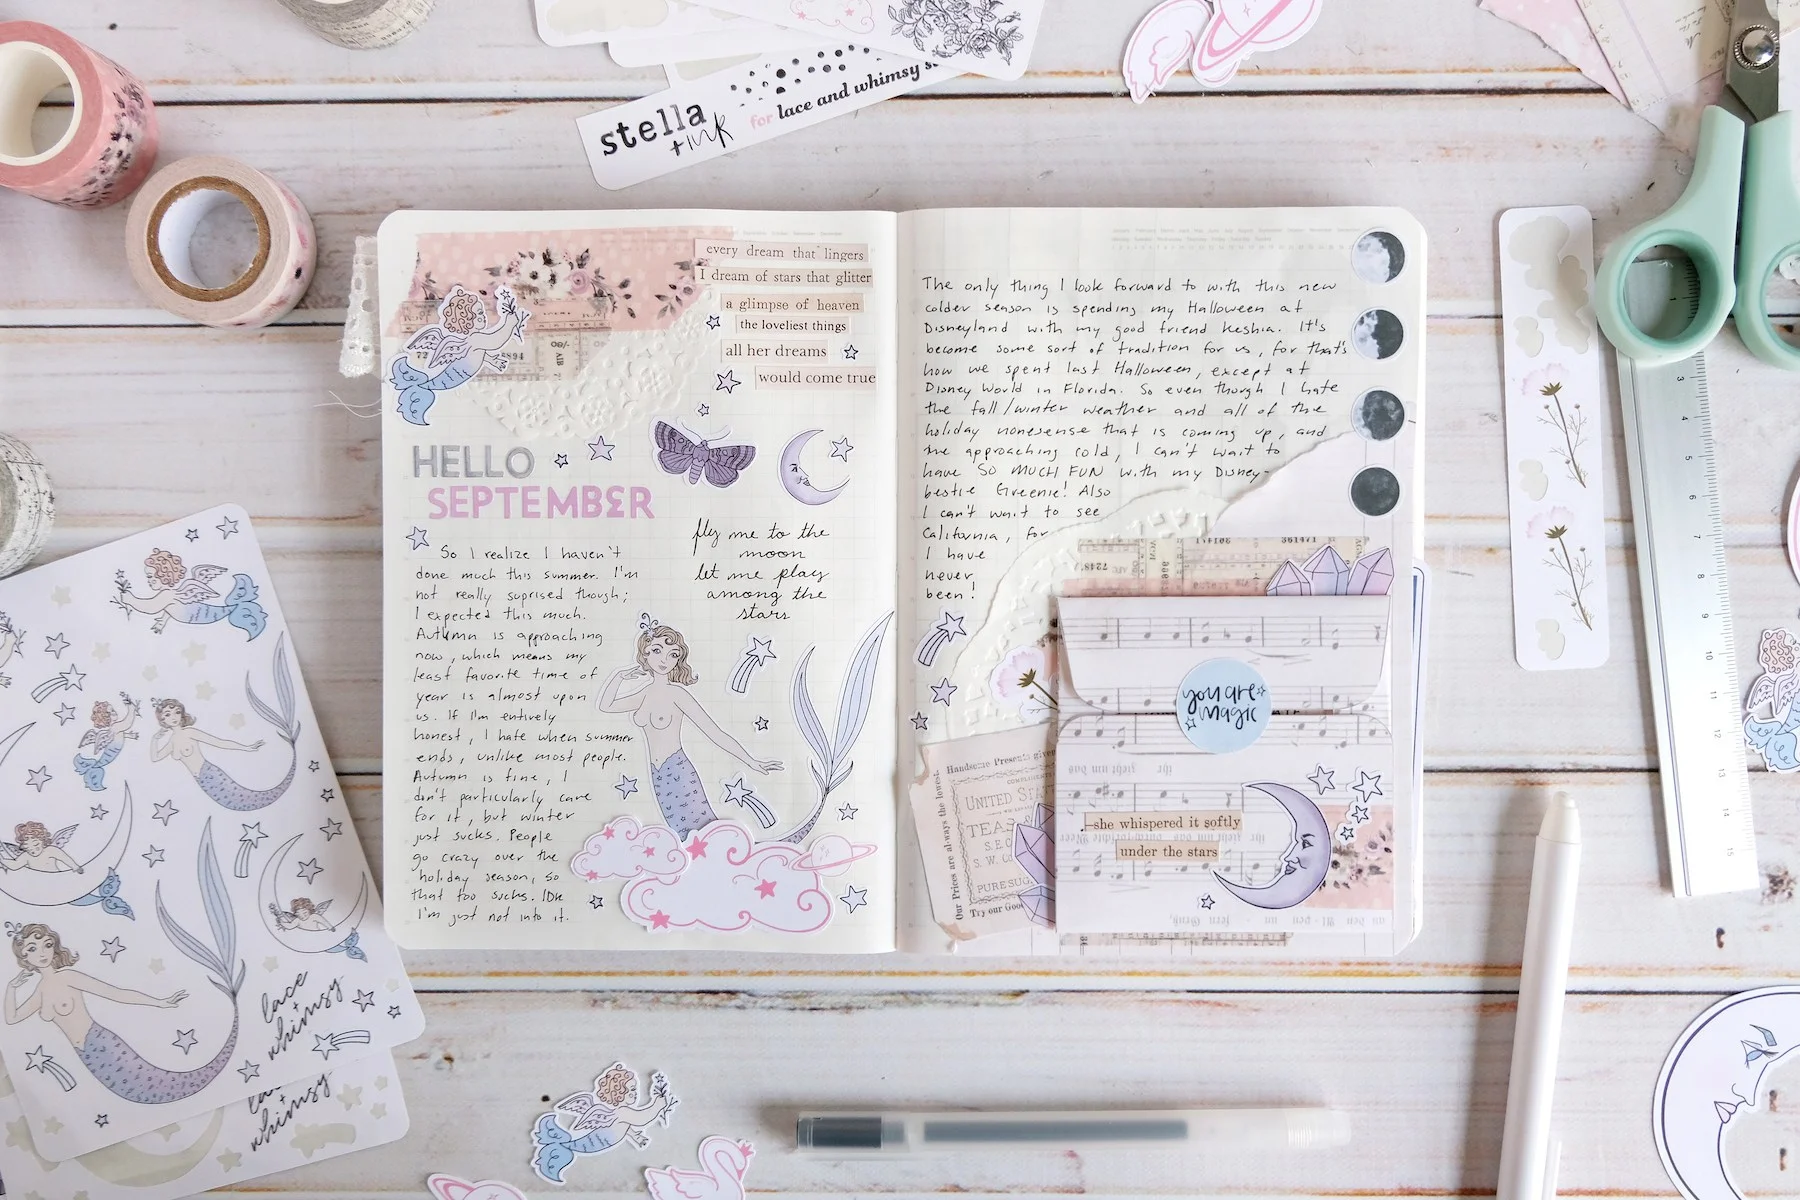 stella
+ink
for lace and whimsy
every dream that lingers
I dream of stars that glitter
a glimpse of heaven
the loveliest things
all her dreams
would come true
HELLO
SEPTEMBER
fly me to the
moon
let me play
among the
stars
So I realize I haven't
done much this summer. I'm
not really suprised though;
I expected this much.
Autumn is approaching
now, which means my
least favorite time of
year is almost upon
us. If I'm entirely
honest, I hate when summer
ends, unlike most people.
Autumn is fine, I
don't particularly care
for it, but winter
just sucks. People
go crazy over the
holiday season, so
that too sucks. IDK
I'm just not into it.
The only thing I look forward to with this new
colder season is spending my Halloween at
Disneyland with my good friend Keshia. It's
become some sort of tradition for us, for that's
how we spent last Halloween, except at
Disney World in Florida. So even though I hate
the fall/winter weather and all of the
holiday nonesense that is coming up, and
the approaching cold, I can't wait to
have SO MUCH FUN with my Disney-
bestie Greenie! Also
I can't wait to see
California, for
I have
never
been!
you are
magic
she whispered it softly
under the stars
Handsome Presents given
Our Prices are always the lowest.
UNITED STAT
TEAS &
S. W. Co
PURE SUG
Try our Goo
361471
72
6894
lace
+
whimsy
whimsy
3
4
5
6
7
8
9
10
11
12
13
14
15